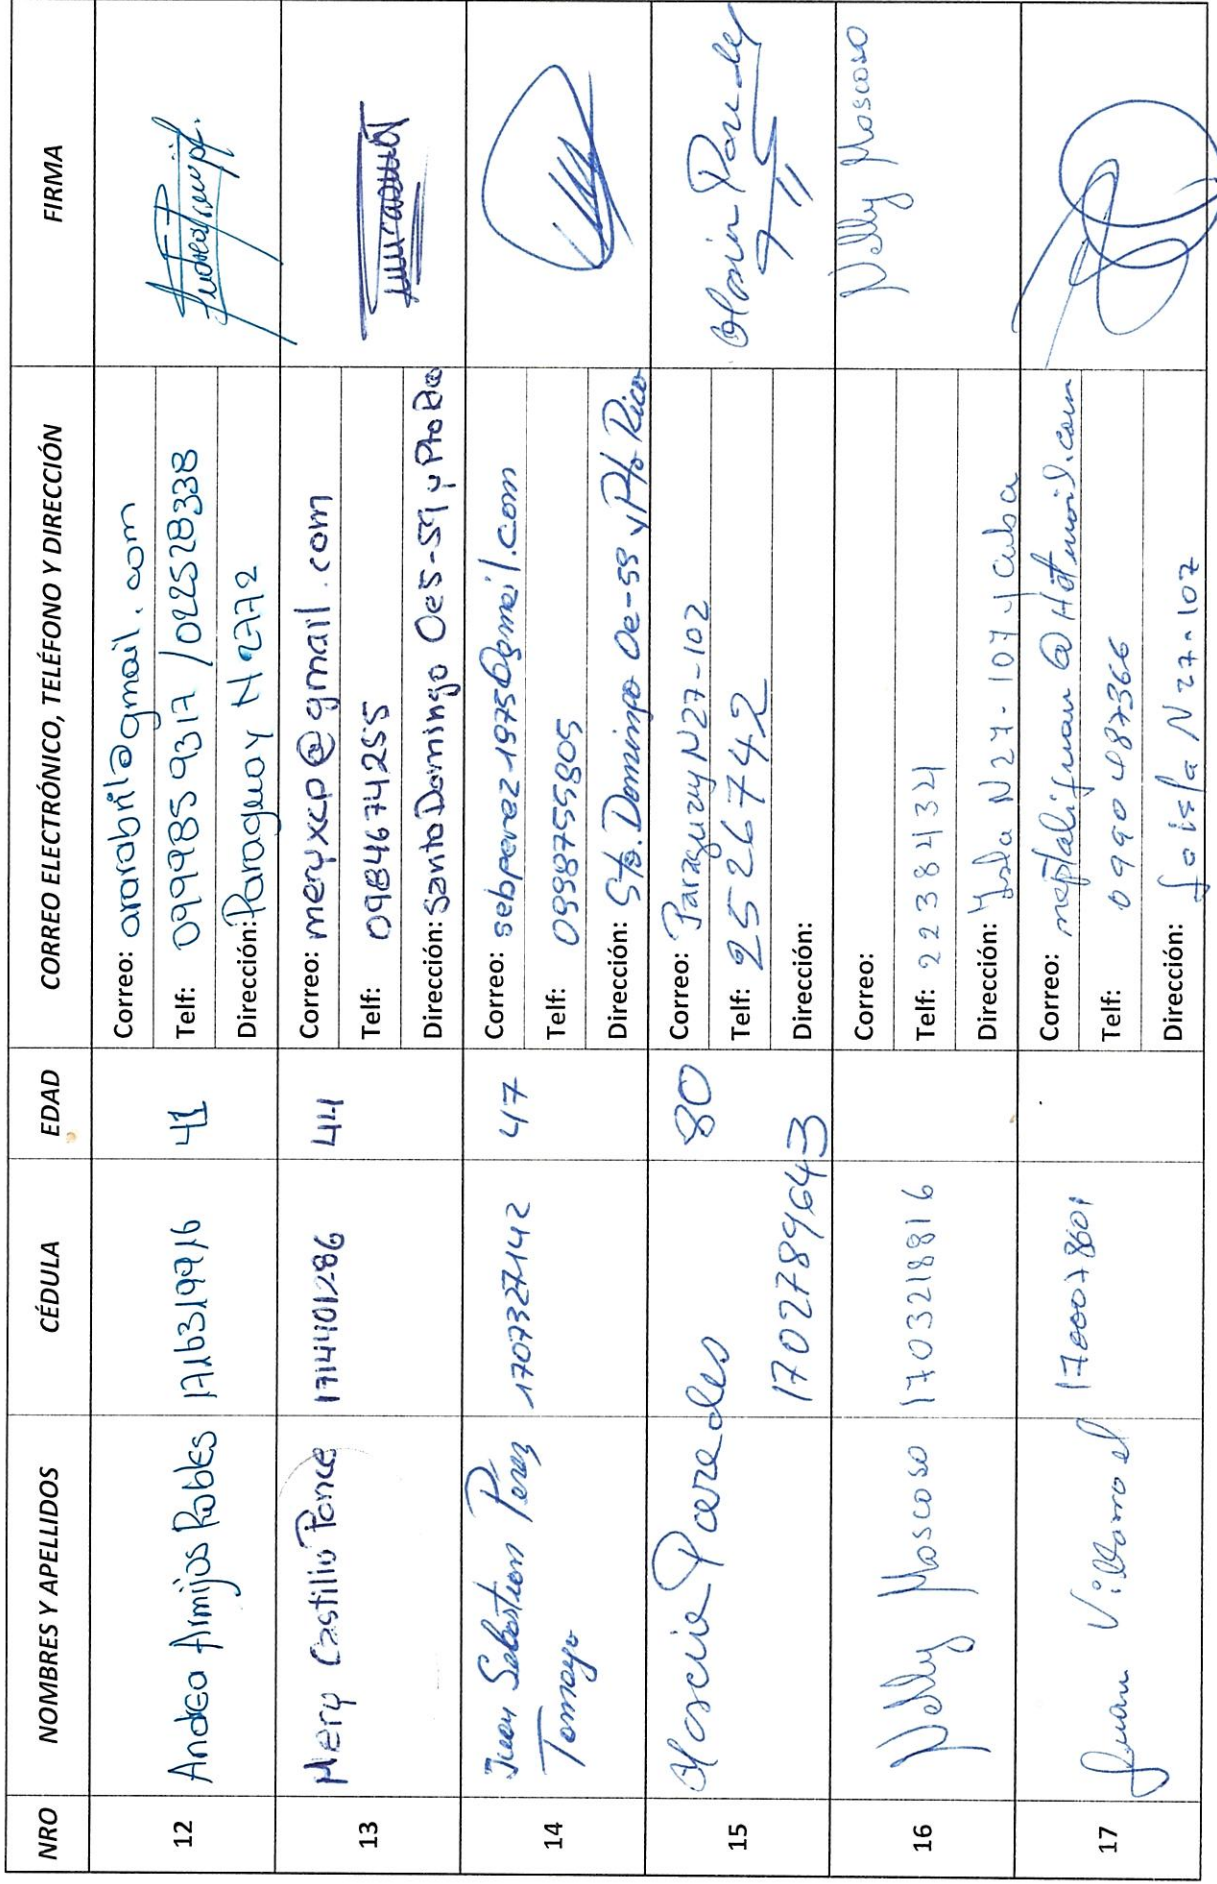 NRO NOMBRES Y APELLIDOS CÉDULA EDAD CORREO ELECTRÓNICO, TELÉFONO Y DIRECCIÓN FIRMA
12 Andrea Armijos Robles 1716319916 41
Correo: ararabril@gmail.com
Telf: 099985 9317 / 022528338
Dirección: Paraguay N2772
13 Mery Castillo Ponce 1714401286 44
Correo: meryxcp@gmail.com
Telf: 0984674255
Dirección: Santo Domingo Oe5-59 y Pto Rico
14 Juan Sebastian Pérez
Tamayo 1707327142 47
Correo: sebperez1975@gmail.com
Telf: 0998755805
Dirección: Sto. Domingo Oe-59 y Pto Rico
15 Paredes 1702789643 80
Correo: Paraguay N27-102
Telf: 2526742
Dirección:
16 Nelly Moscoso 1703218816
Correo:
Telf: 22384321
Dirección: Isla N27-107 y Cuba
Nelly Moscoso
17 Juan Villarroel 1700078601
Correo: neptalijuan@Hotmail.com
Telf: 0990487366
Dirección: la isla N27-107